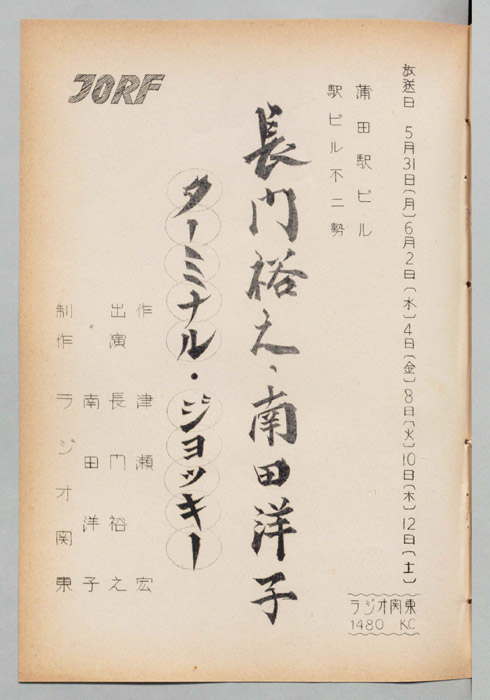 放送日 5月31日(月)6月2日(水)4日(金)8日(火)10日(木)12日(土)
ラジオ関東
1480 KC
蒲田駅ビル
駅ビル不二勢
長門裕之・南田洋子
ターミナル・ジョッキー
JORF
作 津瀬 宏
出演 長門裕之
南田洋子
制作 ラジオ関東